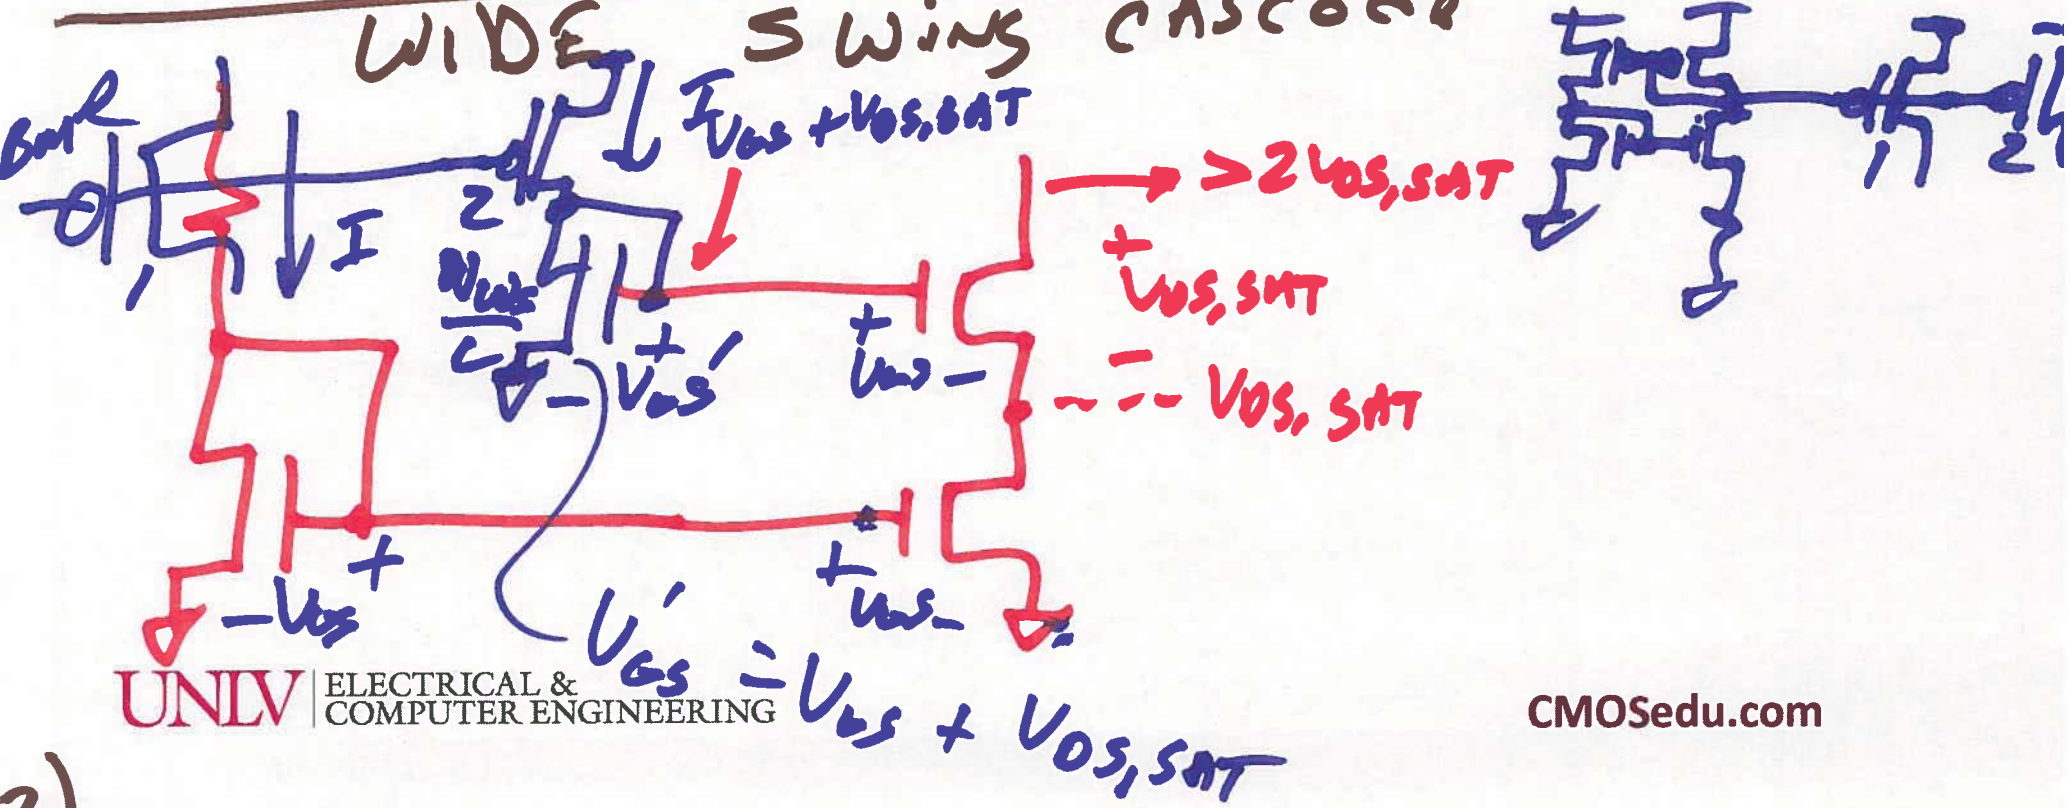 WIDE SWING CASCODE
BMR
I
VGS + VDS,SAT
> 2VDS,SAT
1
2
I
1
2
+
VDS,SAT
-
+
VGS -
+
- VGS'
- - - VDS,SAT
+
- VGS
+
VGS -
VGS' = VGS + VDS,SAT
UNLV
ELECTRICAL &
COMPUTER ENGINEERING
CMOSedu.com